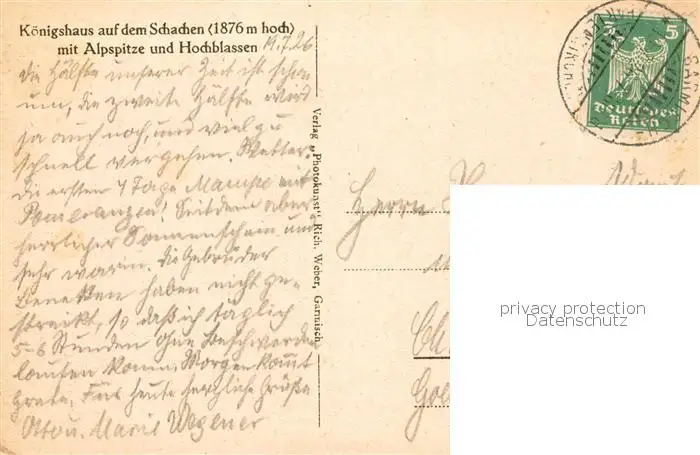 Königshaus auf dem Schachen (1876 m hoch)
mit Alpspitze und Hochblassen
19.7.26
die Hälfte unserer Zeit ist schon
um, die zweite Hälfte wird
ja auch noch, und viel zu
schnell vergehen. Wetter:
die ersten 4 Tage Mampe mit
Pomeranzen! Seitdem aber
herrlicher Sonnenschein und
sehr warm. Die Gebrüder
Beneken haben nicht ge-
streikt, so daß ich täglich
5-6 Stunden ohne Beschwerden
laufen kann. Morgen kommt
Grete. Für heute herzliche Grüße
Otto u. Marie Wegener
Verlag „Photokunst" Rich. Weber, Garmisch
5 5
Deutsches
Reich
Herrn
privacy protection
Datenschutz